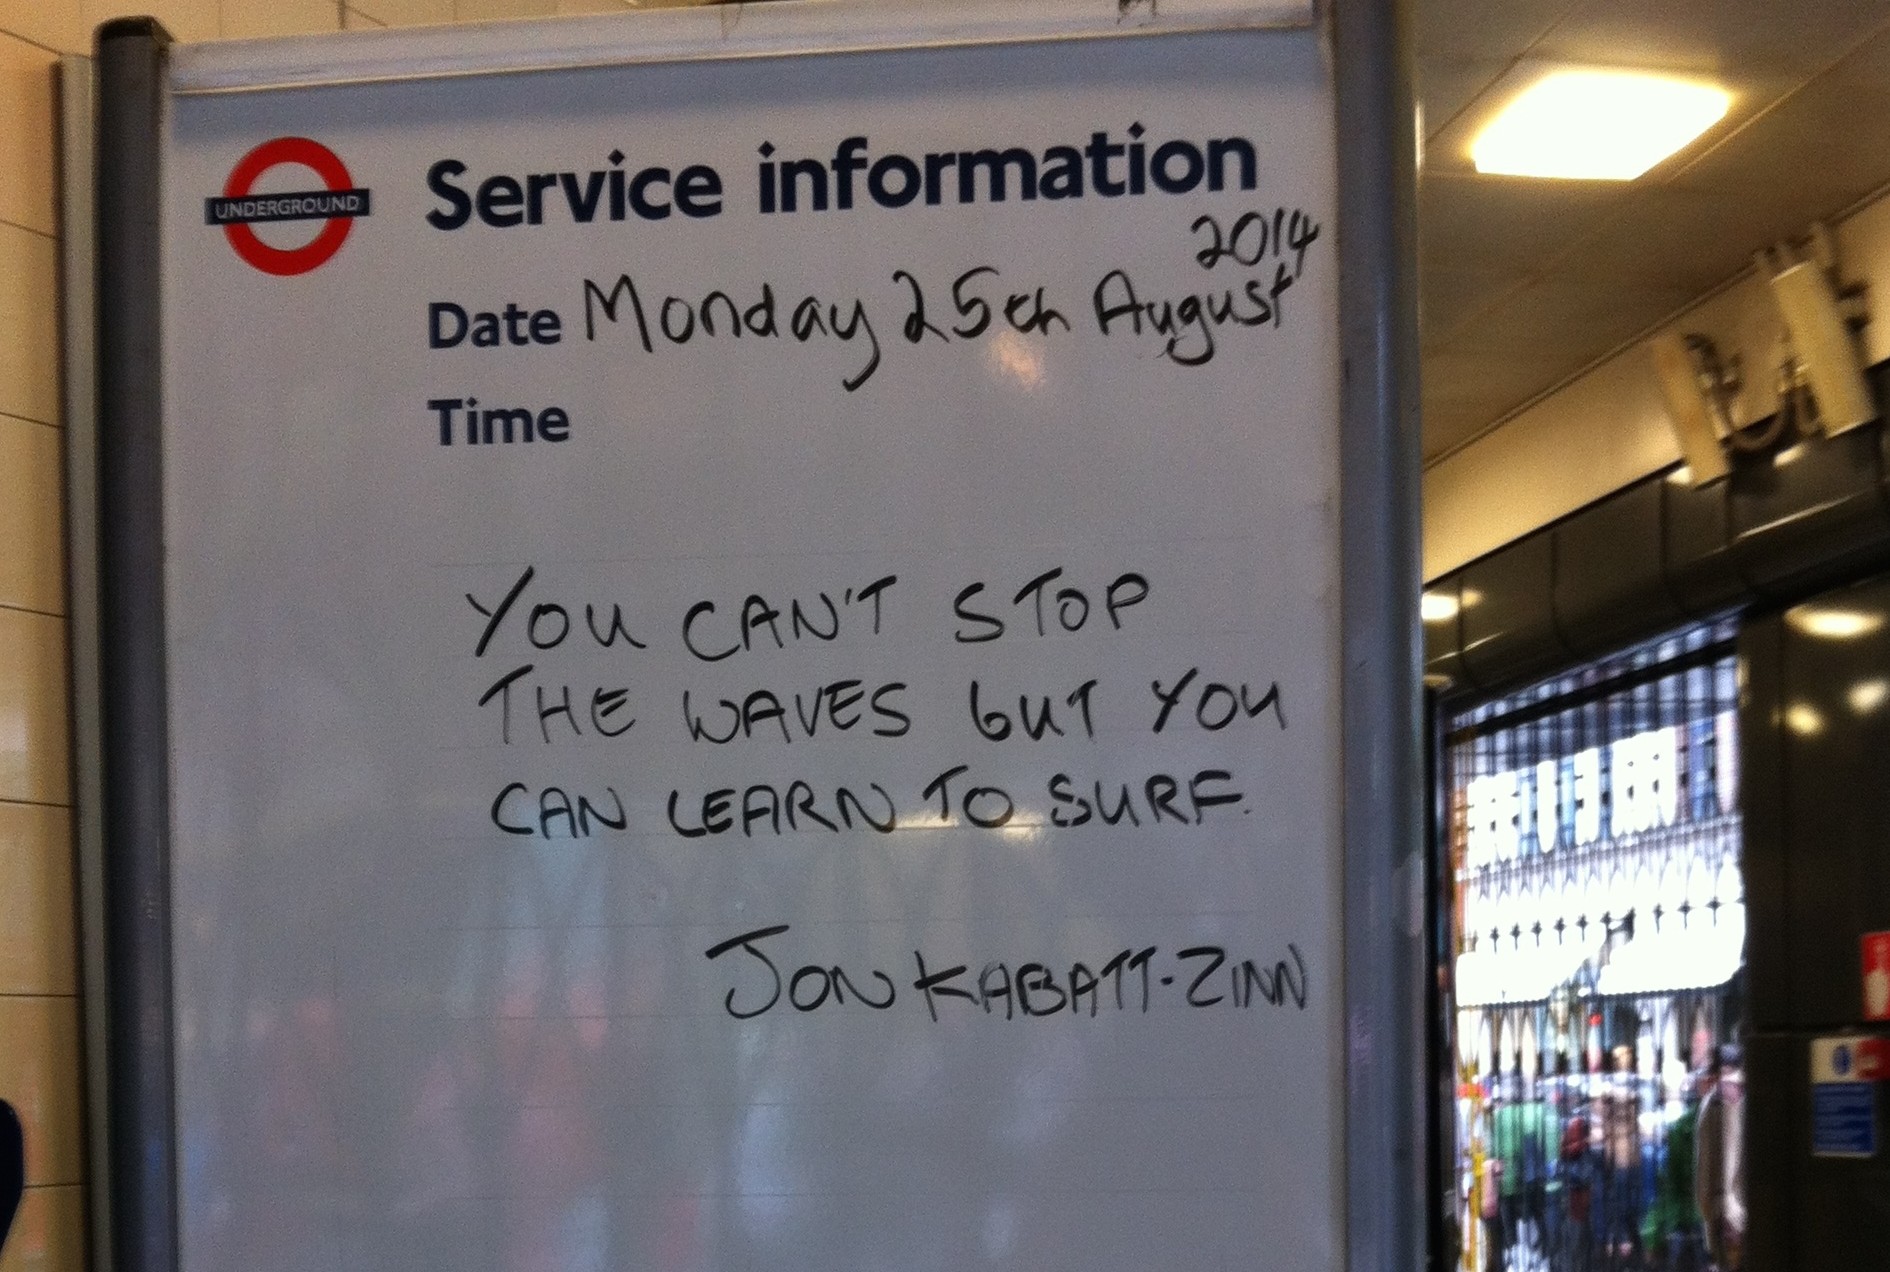 UNDERGROUND
Service information
2014
Date Monday 25th August
Time
YOU CAN'T STOP
THE WAVES bUT YOU
CAN LEARN TO SURF.
JON KABATT-ZINN